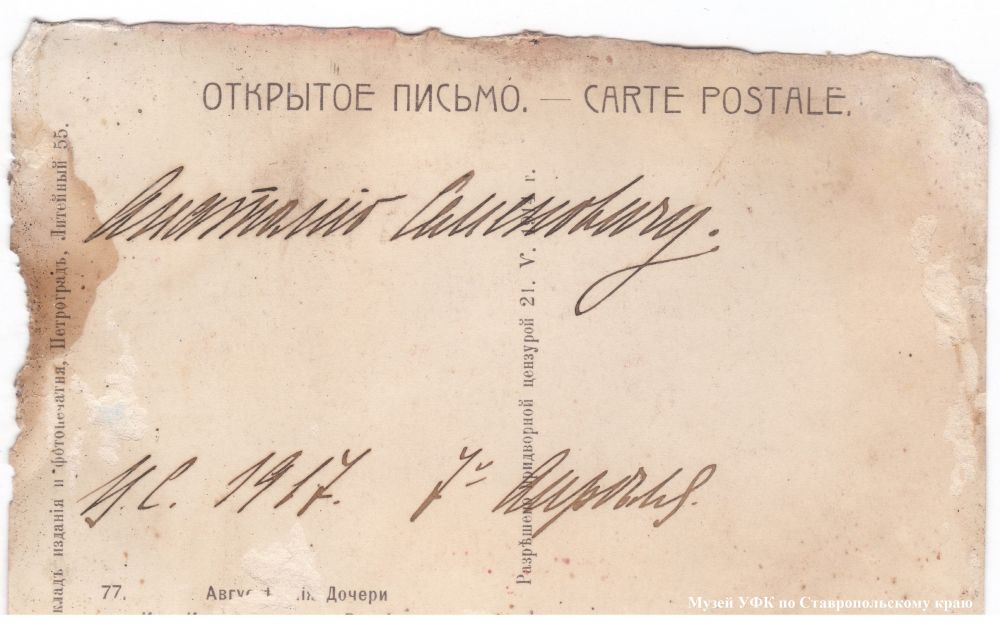 ОТКРЫТОЕ ПИСЬМО. — CARTE POSTALE.
Анатолію Семеновичу.
Ц.С. 1917. 7й Апрѣля.
кладъ изданія и фотопечатня, Петроградъ, Литейный 55.
Разрѣшено придворной цензурой 21. V. г.
77. Дочери
Музей УФК по Ставропольскому краю